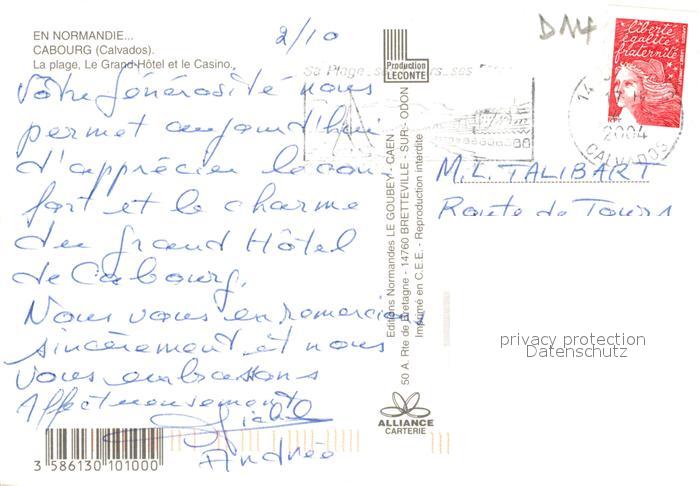 EN NORMANDIE...
CABOURG (Calvados).
La plage, Le Grand Hôtel et le Casino.
2/10
Votre générosité nous
permet aujourd'hui
d'apprécier le con-
fort et le charme
du Grand Hôtel
de Cabourg.
Nous vous en remercions
sincèrement et nous
vous embrassons
affectueusement
Andrée
3 586130 101000
Production
LECONTE
Editions Normandes LE GOUBEY - CAEN
50 A. Rte de Bretagne - 14760 BRETTEVILLE - SUR - ODON
Imprimé en C.E.E. - Reproduction interdite
ALLIANCE
CARTERIE
D14
Sa Plage
liberté
égalité
fraternité
14
2004
CALVADOS
M. L. TALIBART
Route de Tours
privacy protection
Datenschutz